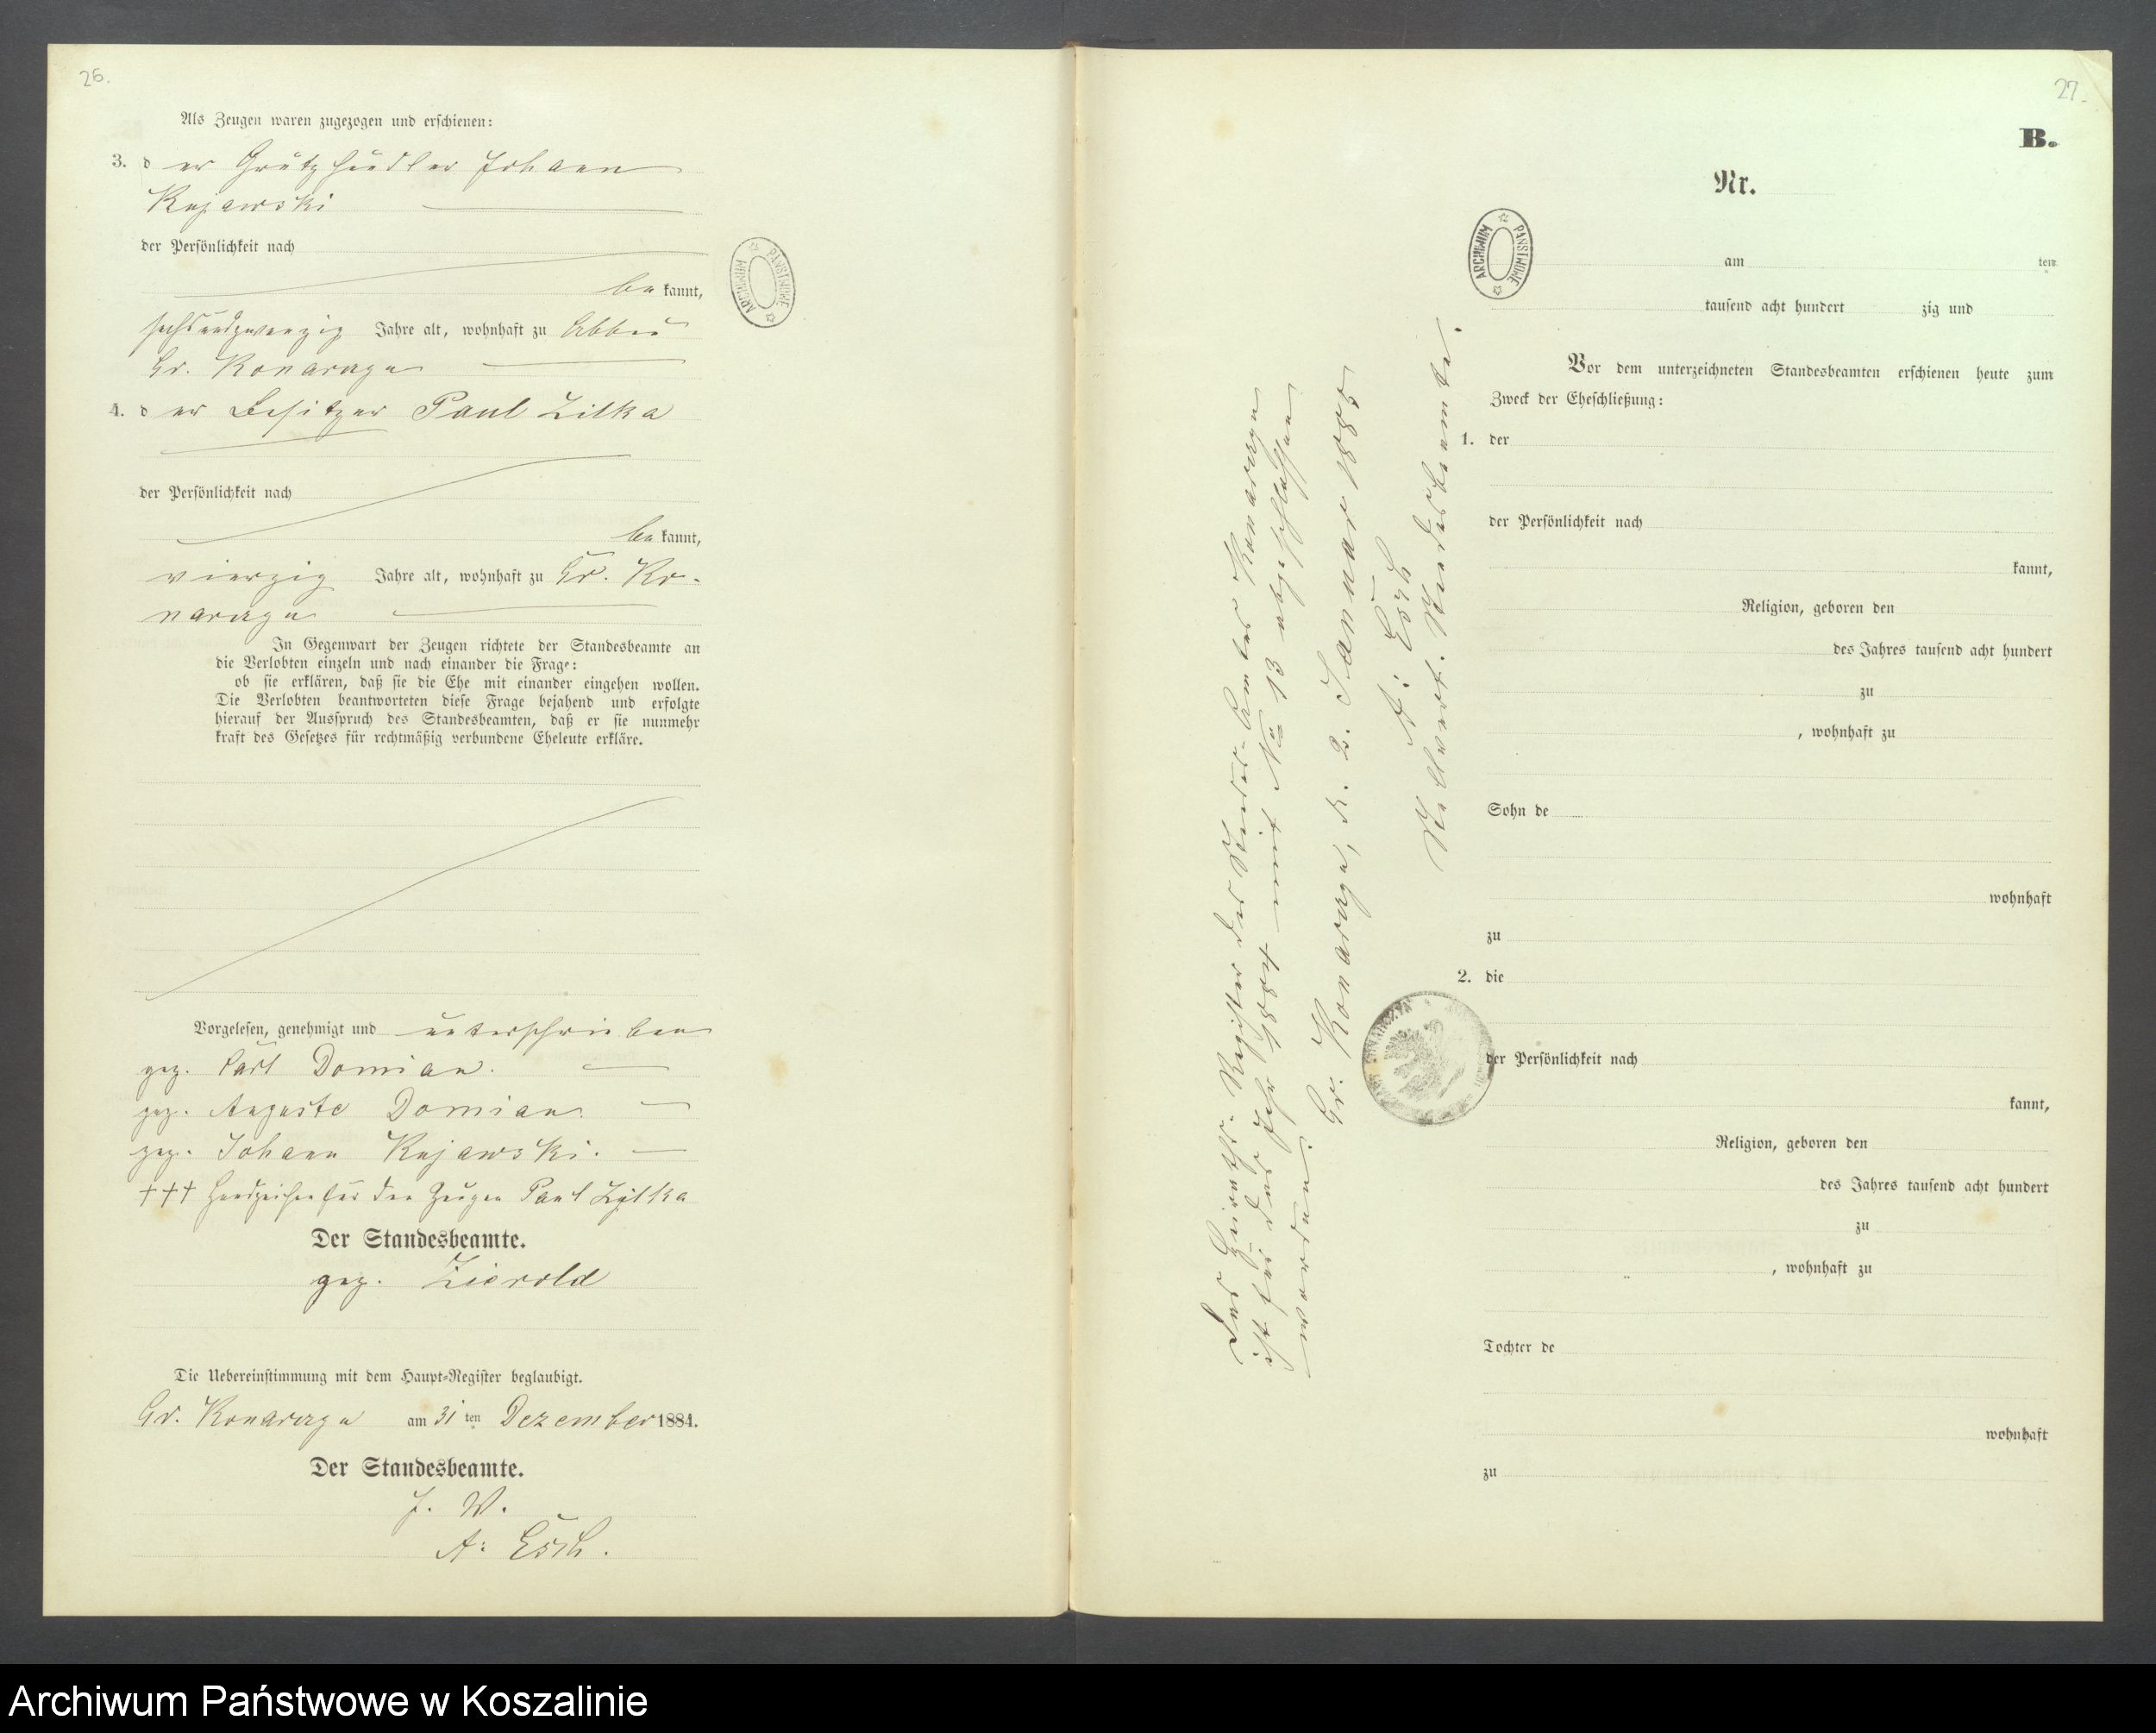 26.
Als Zeugen waren zugezogen und erschienen:
3. der Grützhändler Johann
Kujawski
der Persönlichkeit nach
bekannt,
sechsundzwanzig Jahre alt, wohnhaft zu Abbau
Gr. Konarczyn
4. der Besitzer Paul Zilka
der Persönlichkeit nach
bekannt,
vierzig Jahre alt, wohnhaft zu Gr. Ko-
narczyn
In Gegenwart der Zeugen richtete der Standesbeamte an
die Verlobten einzeln und nach einander die Frage:
ob sie erklären, daß sie die Ehe mit einander eingehen wollen.
Die Verlobten beantworteten diese Frage bejahend und erfolgte
hierauf der Ausspruch des Standesbeamten, daß er sie nunmehr
kraft des Gesetzes für rechtmäßig verbundene Eheleute erkläre.
Vorgelesen, genehmigt und unterschrieben
gez. Karl Domian.
gez. Auguste Domian.
gez. Johann Kujawski.
+++ Handzeichen für den Zeugen Paul Zylka
Der Standesbeamte.
gez. Zierold
Die Uebereinstimmung mit dem Haupt-Register beglaubigt.
Gr. Konarczyn am 31ten Dezember 1884.
Der Standesbeamte.
J. V.
A. Esch.
ARCHIWUM PAŃSTWOWE
27.
B.
Nr.
ARCHIWUM PAŃSTWOWE
am ten
tausend acht hundert zig und
Vor dem unterzeichneten Standesbeamten erschienen heute zum
Zweck der Eheschließung:
1. der
der Persönlichkeit nach
kannt,
Religion, geboren den
des Jahres tausend acht hundert
zu
, wohnhaft zu
Sohn de
wohnhaft
zu
2. die
der Persönlichkeit nach
kannt,
Religion, geboren den
des Jahres tausend acht hundert
zu
, wohnhaft zu
Tochter de
wohnhaft
zu
Das Heiraths-Register des Standes-Amtes Konarczyn
ist für das Jahr 1884 mit No 13 abgeschlossen
worden.
Gr. Konarczyn, d. 2. Januar 1885
A. Esch
Stellvert. Standesbeamte.
Archiwum Państwowe w Koszalinie